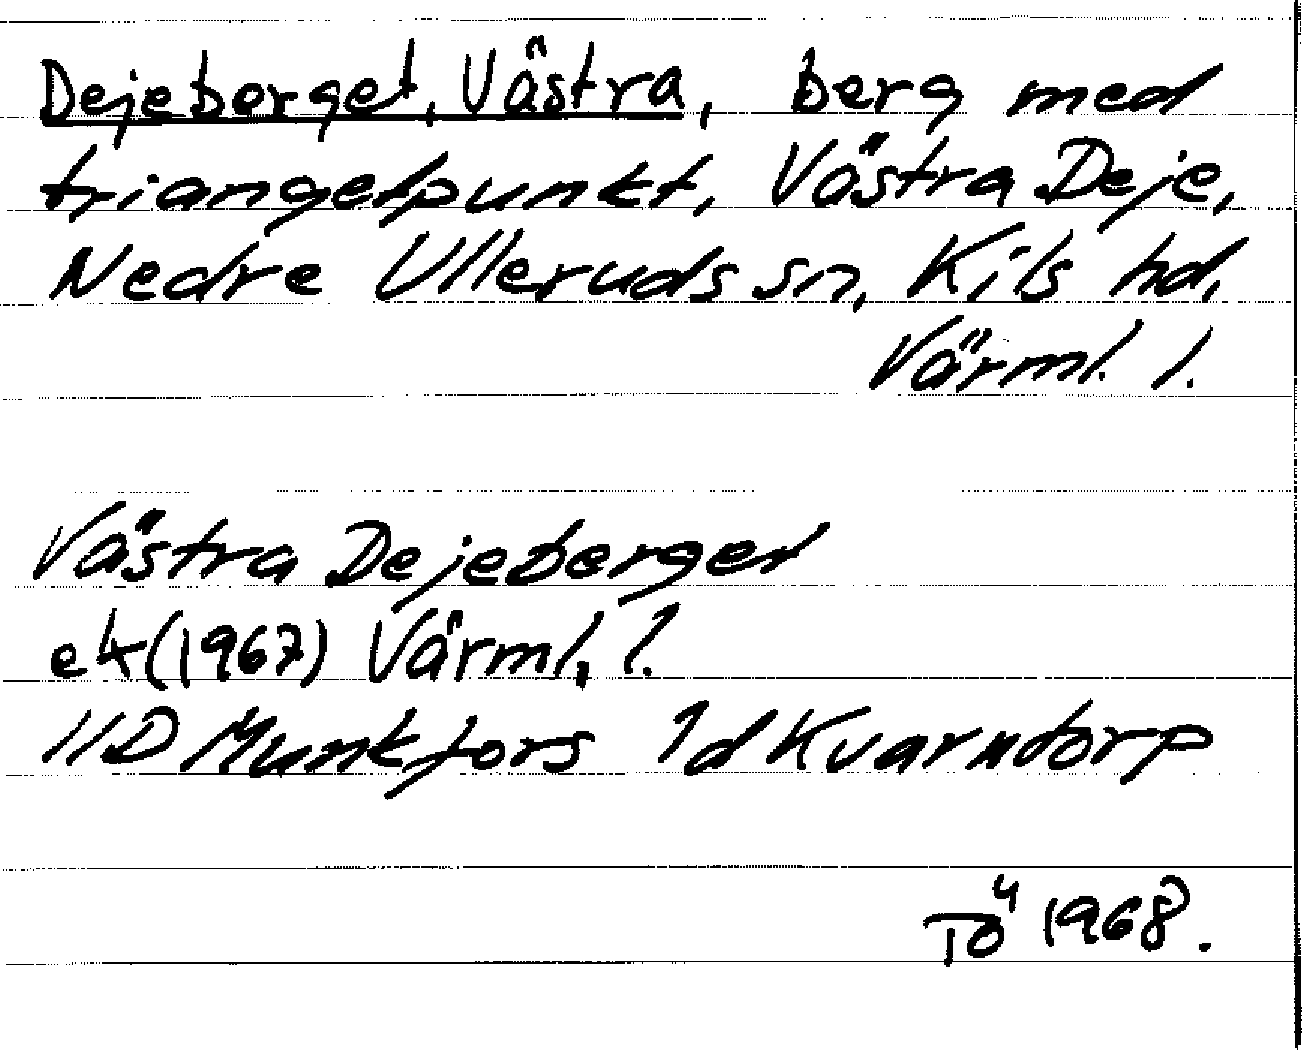 Dejeberget, Västra, berg med
triangelpunkt, Västra Deje,
Nedre Ulleruds sn, Kils hd,
Värml. l.
Västra Dejeberget
ek (1967) Värml. l.
11D Munkfors 1d Kvarntorp
Tö 1968.